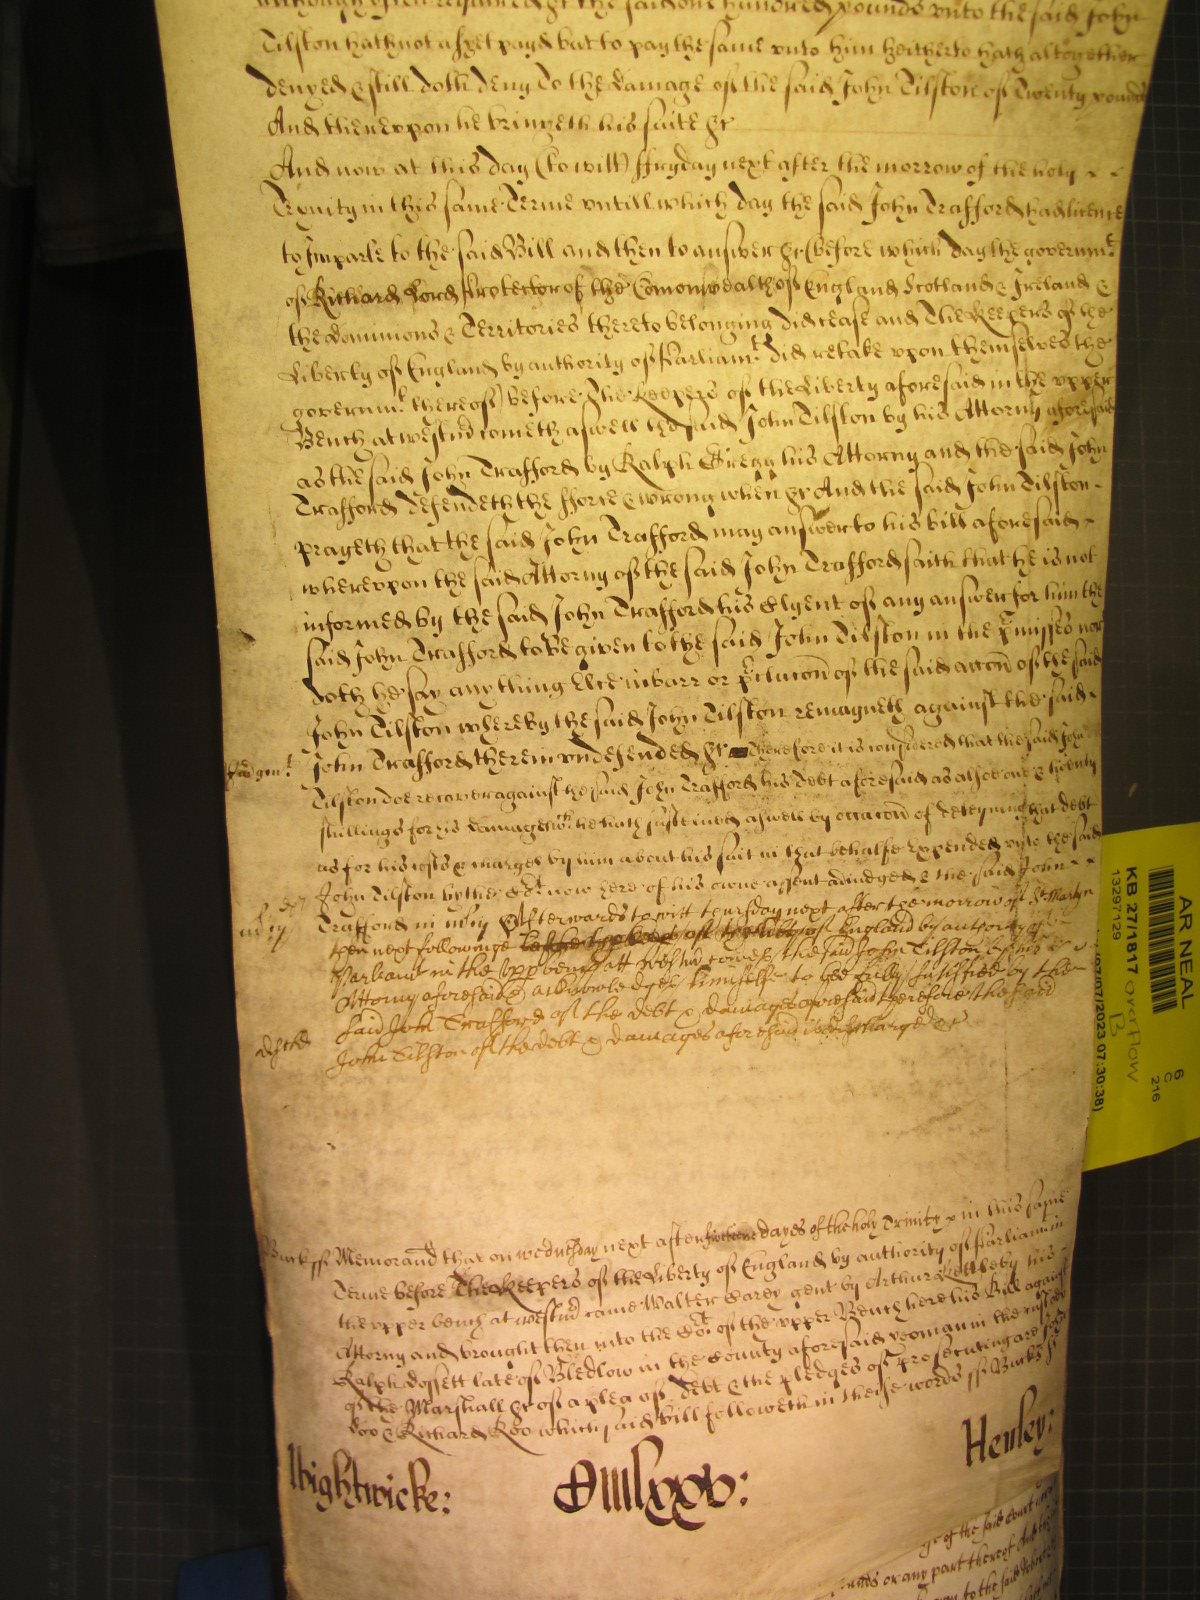 although often required &c the said one hundred pounds vnto the said John
Tilston hath not as yet payd but to pay the same vnto him heitherto hath altogether
denyed & still doth deny To the damage of the said John Tilston of Twenty pounds
And therevpon he bringeth his suite &c
And now at this day (to witt) ffryday next after the morrow of the holy
Trinity in this same Terme vntill which day the said John Trafford had licence
to Imparle to the said Bill and then to answer &c (before which day the governmt
of Richard Lord Protector of the Comonwealth of England Scotland & Ireland &
the dominions & Territories thereto belonging did cease and The Keepers of the
Liberty of England by authority of Parliamt did retake vpon themselves the
governmt thereof) before The Keepers of the Liberty aforesaid in the vpper
Bench at Westmr cometh aswell the said John Tilston by his Attorny aforesaid
as the said John Trafford by Ralph Gregg his Attorny and the said John
Trafford defendeth the fforce & wrong when &c And the said John Tilston
prayeth that the said John Trafford may answer to his bill aforesaid
wherevpon the said Attorny of the said John Trafford saith that he is not
informed by the said John Trafford his Clyent of any answer for him the
said John Trafford to be given to the said John Tilston in the pmisses nor
doth he say any thing Else in barr or pclucon of the said accon of the said
John Tilston whereby the said John Tilston remayneth against the said
John Trafford therein vndefended &c Therefore it is considered that the said John
Tilston doe recover against the said John Trafford his Debt aforesaid as alsoe one & twenty
shillings for his damages wch he hath susteined aswell by occacon of deteyning that debt
as for his costs & charges by him about his suit in that behalfe expended vnto the said
John Tilston by the Cort now here of his owne assent adiudged & the said John
Trafford in mcy Afterwards to witt thursday next after the morrow of St Martyn
then next followinge of England by authority of
Parliamt in the vpp bench att Westmr comes the said John Tilston by his
Attorny aforesaid & acknowledges himselfe to bee fully satisfied by the
said John Trafford of the debt & damages aforesaid therefore the said
John Tilston of the debt & damages aforesaid is discharged &c
Bucks ss Memorand that on wednesday next after dayes of the holy Trinity in this same
Terme before The Keepers of the Liberty of England by authority of Parliamt in
the vpper bench at westmr came Walter Carey gent by Arthur Kettleby his
Attorny and brought then into the Cort of the vpper Bench here his Bill against
Ralph dossett late of Bledlow in the County aforesaid yeoman in the custody
of the Marshall &c of a plea of debt & the pledges of prosecuting are John
doo & Richard Roo which said bill followeth in theise words ss Bucks ss
Wightwicke: Henley:
ge of the said Court
or any part thereof
to the said
AR NEAL
6
C
216
KB 27/1817 overflow
13297129
B
(07/07/2023 07:30:38)